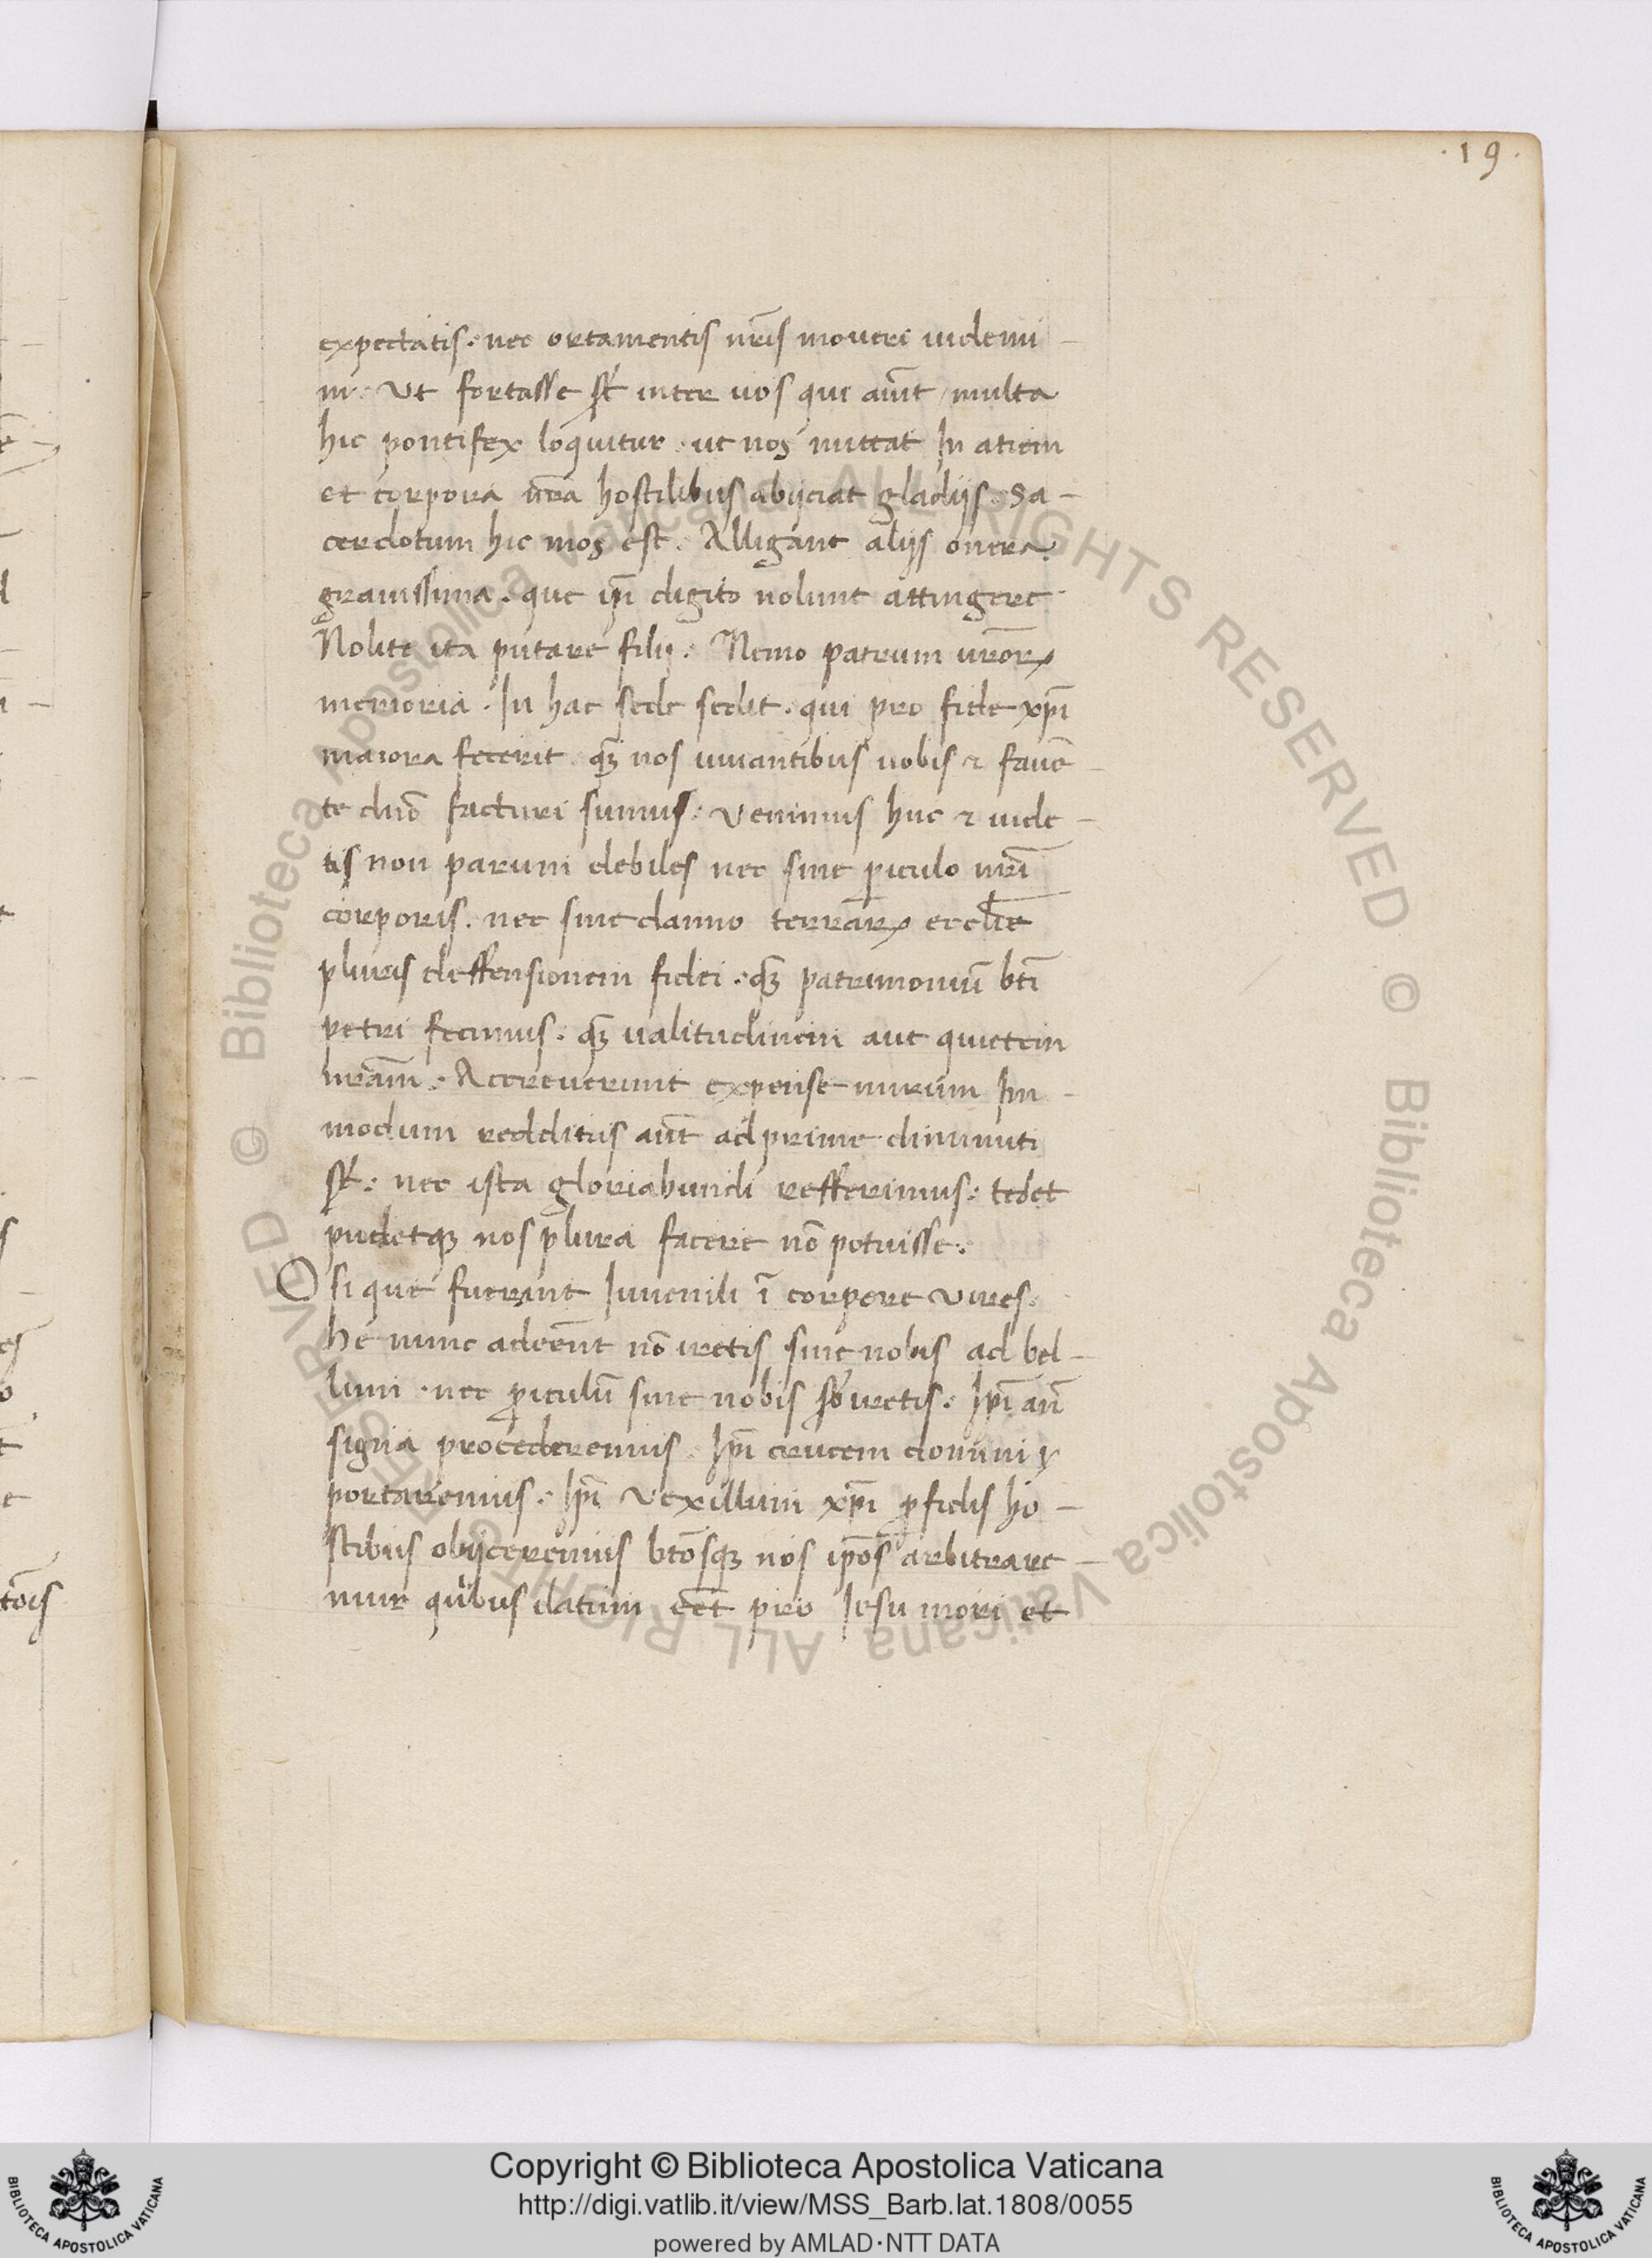 .19.
expectatis. nec ortamentis nr̄is moveri videmi-
ni. Ut fortasse sūt inter vos qui aiūt multa
hic pontifex loquitur. ut nos mittat In atiem
et corpora nr̄a hostilibus abijciat gladijs. Sa-
cerdotum hic mos est. Alligant alijs onera
gravissima. que ip̄i digito nolunt attingere
Nolite ita putare filij. Nemo patrum vr̄oꝝ
memoria. In hac sede sedit. qui pro fide xp̄i
maiora fecerit. qꝫ nos iuvantibus vobis ⁊ favē-
te dn̄o facturi sumus. Venimus huc ⁊ vide-
tis non parum debiles nec sine ꝑiculo nr̄i
corporis. nec sine damno terraꝝ eccl̄ie
pluris deffensionem fidei. qꝫ patrimoniū bt̄i
petri fecimus. qꝫ valitudinem aut quietem
nr̄am. Accreverunt expense mirum In
modum redditus aūt ad prime diminuti
sūt. nec ista gloriabundi refferimus. tedet
pudetqꝫ nos plura facere nō potuisse.
O si que fuerunt Iuvenili ī corpore vires.
he nunc adeēnt nō iretis sine nobis ad bel-
lum. nec ꝑiculū sine nobis sb̄iretis. Ip̄i an̄
signa procederemus. Ip̄i crucem domini
portaremus. Ip̄i vexillum xp̄i ꝑfidis ho-
stibus obijceremus bt̄osqꝫ nos ip̄os arbitrare-
mur quibus datum eēt pro Iesu mori et
© Biblioteca Apostolica Vaticana ALL RIGHTS RESERVED
© Biblioteca Apostolica Vaticana ALL RIGHTS RESERVED
Copyright © Biblioteca Apostolica Vaticana
http://digi.vatlib.it/view/MSS_Barb.lat.1808/0055
powered by AMLAD·NTT DATA
BIBLIOTECA APOSTOLICA VATICANA
BIBLIOTECA APOSTOLICA VATICANA